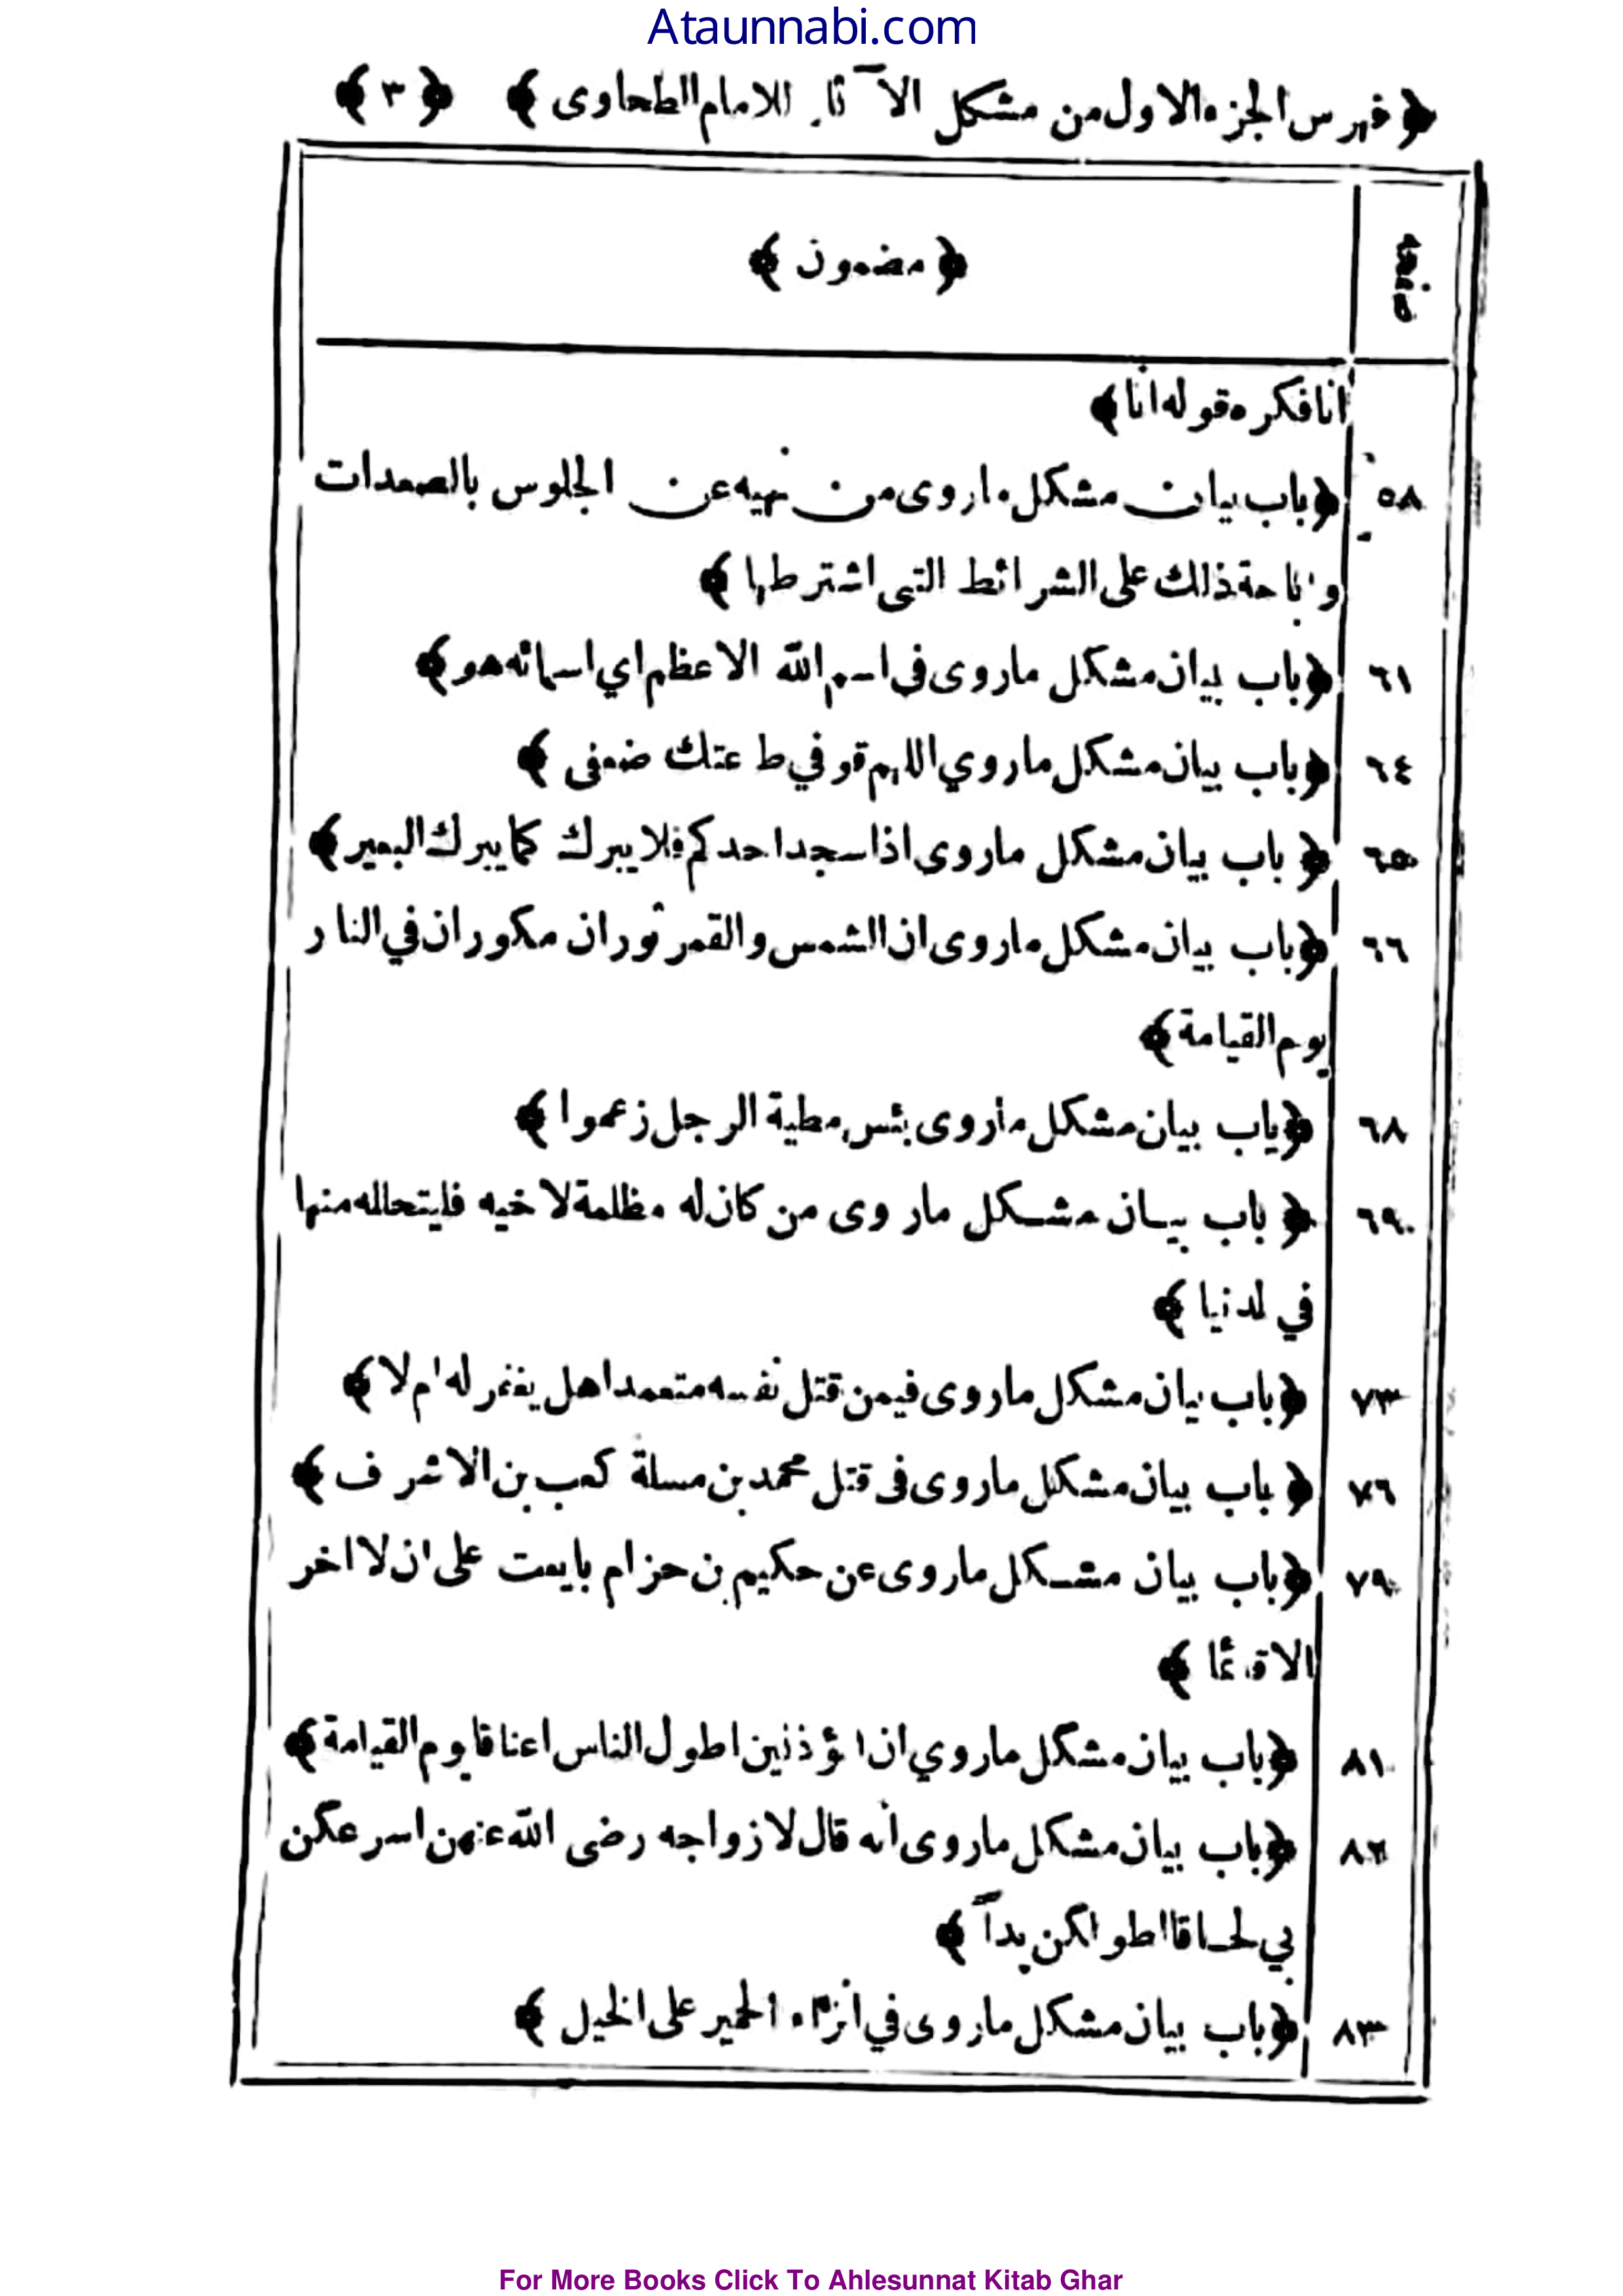 Ataunnabi.com
﴿ فهرس الجزء الاول من مشكل الآثار للامام الطحاوى ﴾ ﴿ ٣ ﴾
صفحه ﴿ مضمون ﴾
انا فكره قوله انا ﴾
٥٨ ﴿ باب بيان مشكل ماروى من نهيه عن الجلوس بالصعدات
و اباحة ذلك على الشرائط التى اشترطها ﴾
٦١ ﴿ باب بيان مشكل ماروى فى اسم الله الاعظم اي اسمائه هو ﴾
٦٤ ﴿ باب بيان مشكل ماروي اللهم قوفي ط عتك ضعفى ﴾
٦٥ ﴿ باب بيان مشكل ماروى اذا سجد احدكم فلا يبرك كما يبرك البعير ﴾
٦٦ ﴿ باب بيان مشكل ماروى ان الشمس والقمر ثوران مكوران في النار
يوم القيامة ﴾
٦٨ ﴿ باب بيان مشكل ماروى بئس مطية الرجل زعموا ﴾
٦٩ ﴿ باب بيان مشكل ماروى من كان له مظلمة لاخيه فليتحلله منها
في لدنيا ﴾
٧٣ ﴿ باب بيان مشكل ماروى فيمن قتل نفسه متعمدا هل يغفر له ام لا ﴾
٧٦ ﴿ باب بيان مشكل ماروى فى قتل محمد بن مسلمة كعب بن الاشرف ﴾
٧٩ ﴿ باب بيان مشكل ماروى عن حكيم بن حزام بايعت على ان لا اخر
الا قائما ﴾
٨١ ﴿ باب بيان مشكل ماروي ان المؤذنين اطول الناس اعناقا يوم القيامة ﴾
٨٢ ﴿ باب بيان مشكل ماروى انه قال لازواجه رضى الله عنهن اسرعكن
بي لحاقا اطولكن يداً ﴾
٨٣ ﴿ باب بيان مشكل ماروى في انزاء الحمير على الخيل ﴾
For More Books Click To Ahlesunnat Kitab Ghar